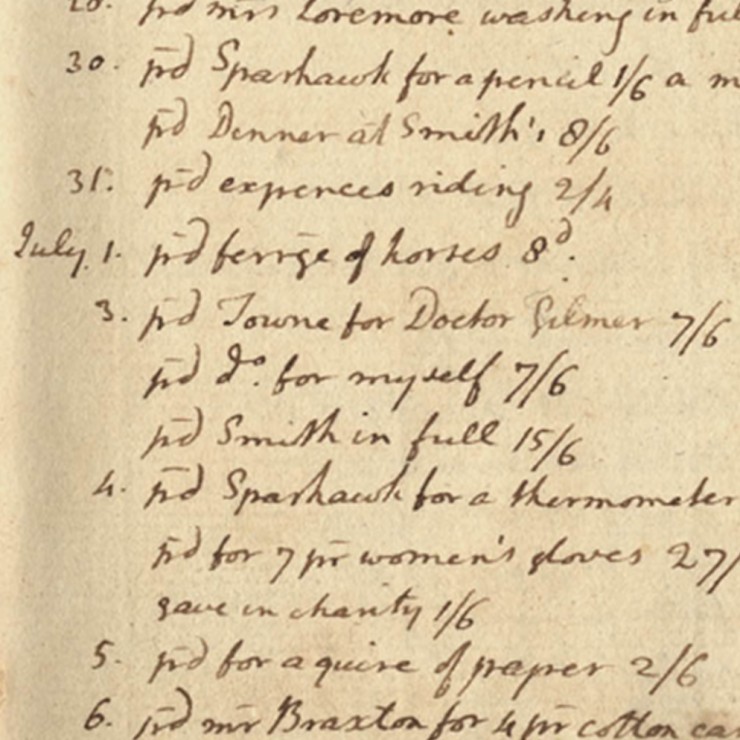 pd mrs Loremore washing in full
30. pd Sparhawk for a pencil 1/6 a m
pd Denner at Smith's 8/6
31. pd expences riding 2/4
July. 1. pd ferrge of horses 8d.
3. pd Towne for Doctor Gilmer 7/6
pd do. for myself 7/6
pd Smith in full 15/6
4. pd Sparhawk for a thermometer
pd for 7 pr women's gloves 27/
gave in charity 1/6
5. pd for a quire of paper 2/6
6. pd mr Braxton for 4 pr cotton ca